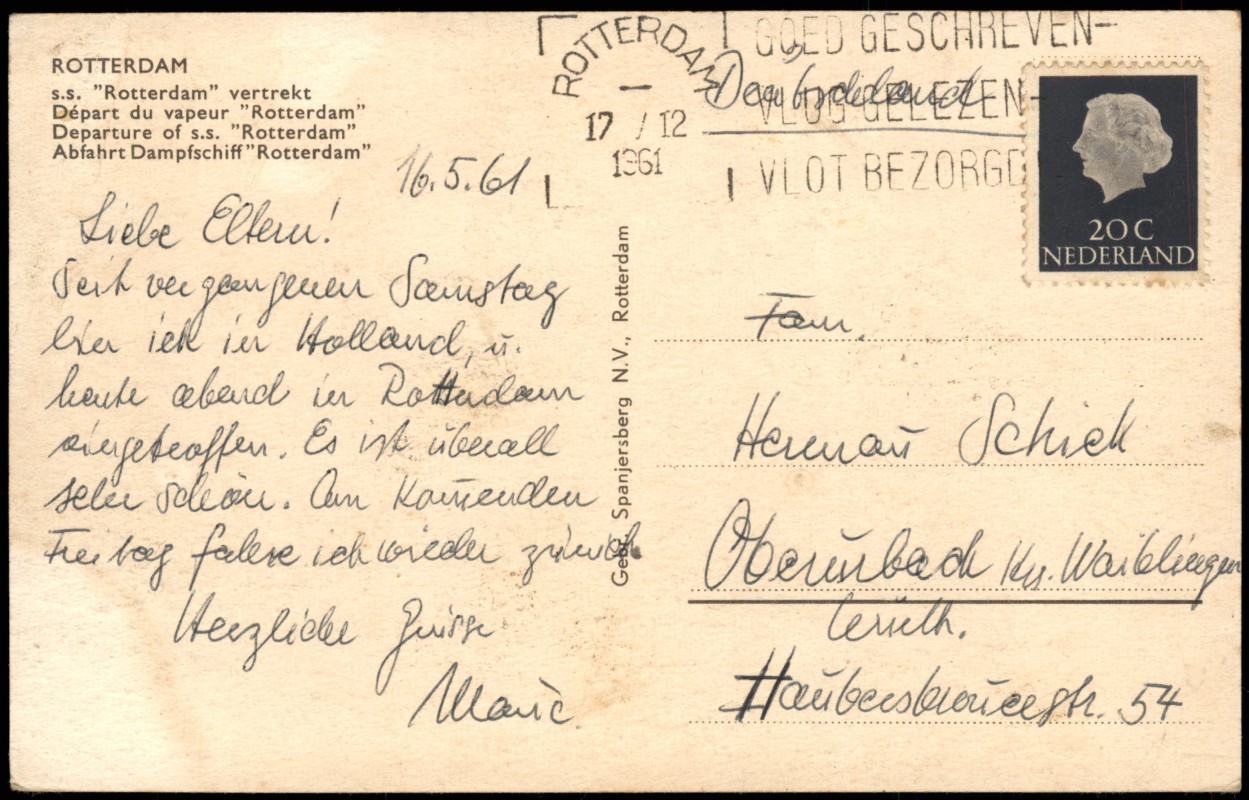 ROTTERDAM
s.s. "Rotterdam" vertrekt
Départ du vapeur "Rotterdam"
Departure of s.s. "Rotterdam"
Abfahrt Dampfschiff "Rotterdam"
16.5.61
Liebe Eltern!
Seit vergangenen Samstag
bin ich in Holland, u.
heute abend in Rotterdam
eingetroffen. Es ist überall
sehr schön. Am kom̄enden
Freitag fahre ich wieder zurück
Herzliche Grüsse
Gebr. Spanjersberg N.V., Rotterdam
ROTTERDAM
17 / 12
1961
GOED GESCHREVEN-
VLUG GELEZEN-
VLOT BEZORGD
Deutschland
20 C
NEDERLAND
Fam.
Herman̄ Schick
Oberurbach Krs. Waiblingen
Württh.
Haubersbronnerstr. 54